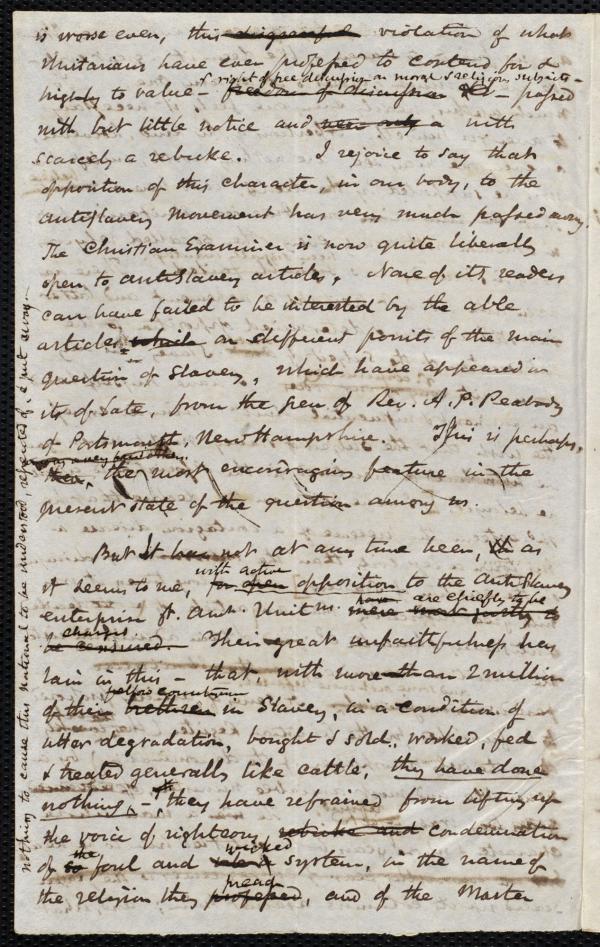 is worse even, this disgraceful violation of what
Unitarians have ever professed to contend for &
& right of free discussion on moral & religious subjects -
highly to value - freedom of discussion - passed
with but little notice and a with
scarcely a rebuke. I rejoice to say that
opposition of this character, in our body, to the
antislavery movement has very much passed away.
The Christian Examiner is now quite liberally
open to antislavery articles. None of its readers
can have failed to be interested by the able
articles, which on different points of the main
question of Slavery, which have appeared in
its of late, from the pen of Rev. A. P. Peabody
of Portsmouth, New Hampshire. This is perhaps,
the most encouraging feature in the
present state of the question among us.
But It has not at any time been, as
with active
it seems to me, for open opposition to the AntiSlavery
have are chiefly to be
enterprise yt. Am. Unitns. were most justly to
charged.
be censured. Their great unfaithfulness has
lain in this - that, with more than 2 million
fellow countrymen
of their brethren in Slavery, in a condition of
utter degradation, bought & sold, worked, fed
& treated generally like cattle, they have done
nothing, - they have refrained from lifting up
the voice of righteous, rebuke and condemnation
the wicked
of so foul and system, in the name of
preach
the religion they professed, and of the Master
nothing to cause this national to be understood, repented of, & put away. -